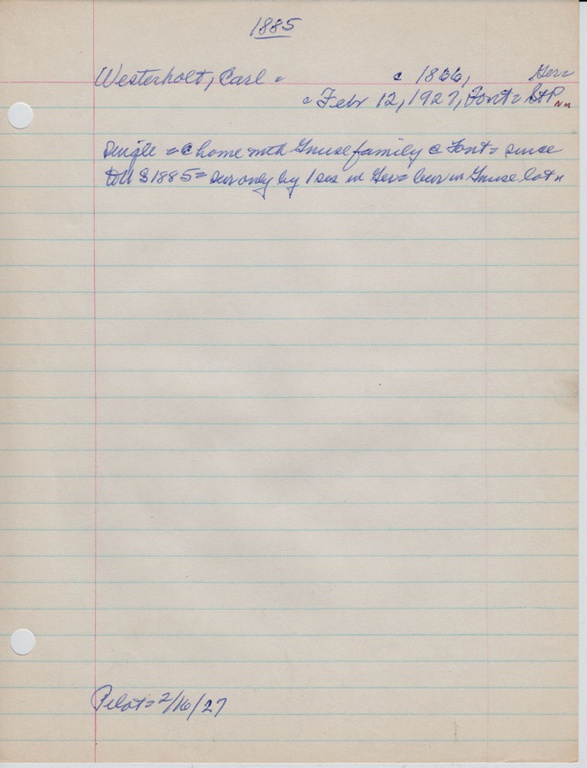 1885
Westerholt, Carl = c 1866, Ger=
= Febr 12, 1927, Font= St P
single = c home with Gnuse family c Font= since
to US 1885= sur only by 1 sis in Ger= bur in Gnuse lot=
Pilot= 2/16/27